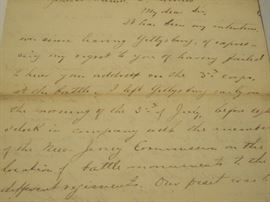 My dear Sir,
It has been my intention,
ever since leaving Gettysburg, of express-
ing my regret to you of having failed
to hear your address on the 3rd corps
at the battle. I left Gettysburg early on
the morning of the 3rd of July, before eight
o'clock in company with the members
of the New Jersey Commission on the
location of battle monuments to the
different regiments. Our